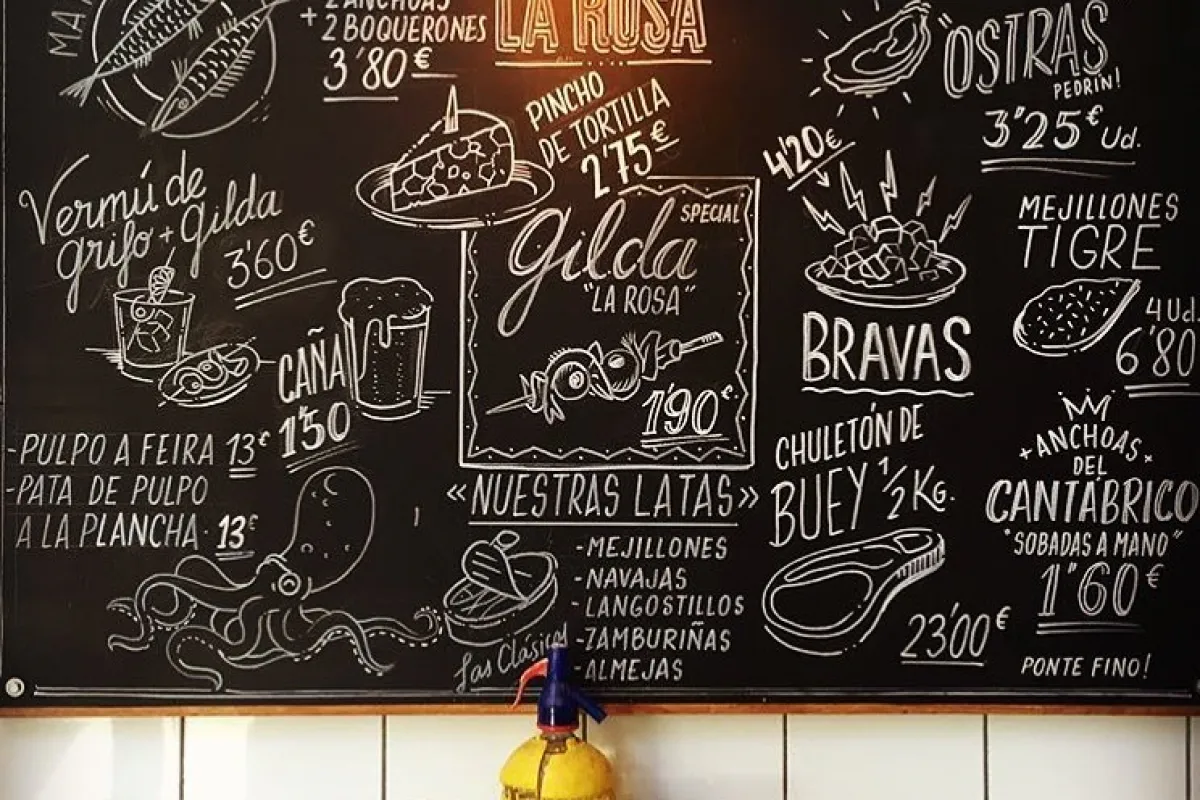 MA
2 ANCHOAS
+ 2 BOQUERONES
3'80€
LA ROSA
"OSTRAS
PEDRÍN!
3"25€ Ud.
PINCHO
DE TORTILLA
2'75€
Vermú de
grifo + Gilda
3'60€
CAÑA
1'50
SPECIAL
Gilda
"LA ROSA"
1'90€
4'20€
BRAVAS
MEJILLONES
TIGRE
4 Ud.
6'80
-PULPO A FEIRA 13€
-PATA DE PULPO
A LA PLANCHA· 13€
«NUESTRAS LATAS»
-MEJILLONES
-NAVAJAS
-LANGOSTILLOS
-ZAMBURIÑAS
-ALMEJAS
Las Clásicas
CHULETÓN DE
BUEY 1/2 KG.
23'00€
+ANCHOAS+
DEL
CANTÁBRICO
"SOBADAS A MANO"
1"60€
PONTE FINO!